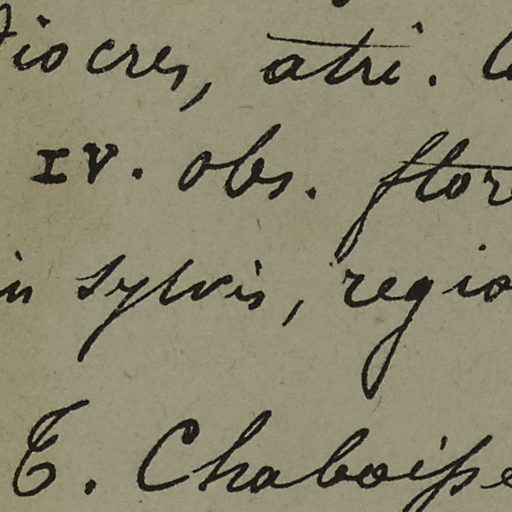 diocres, atri.
IV. obs. flor
in sylvis, regio
T. Chaboisse